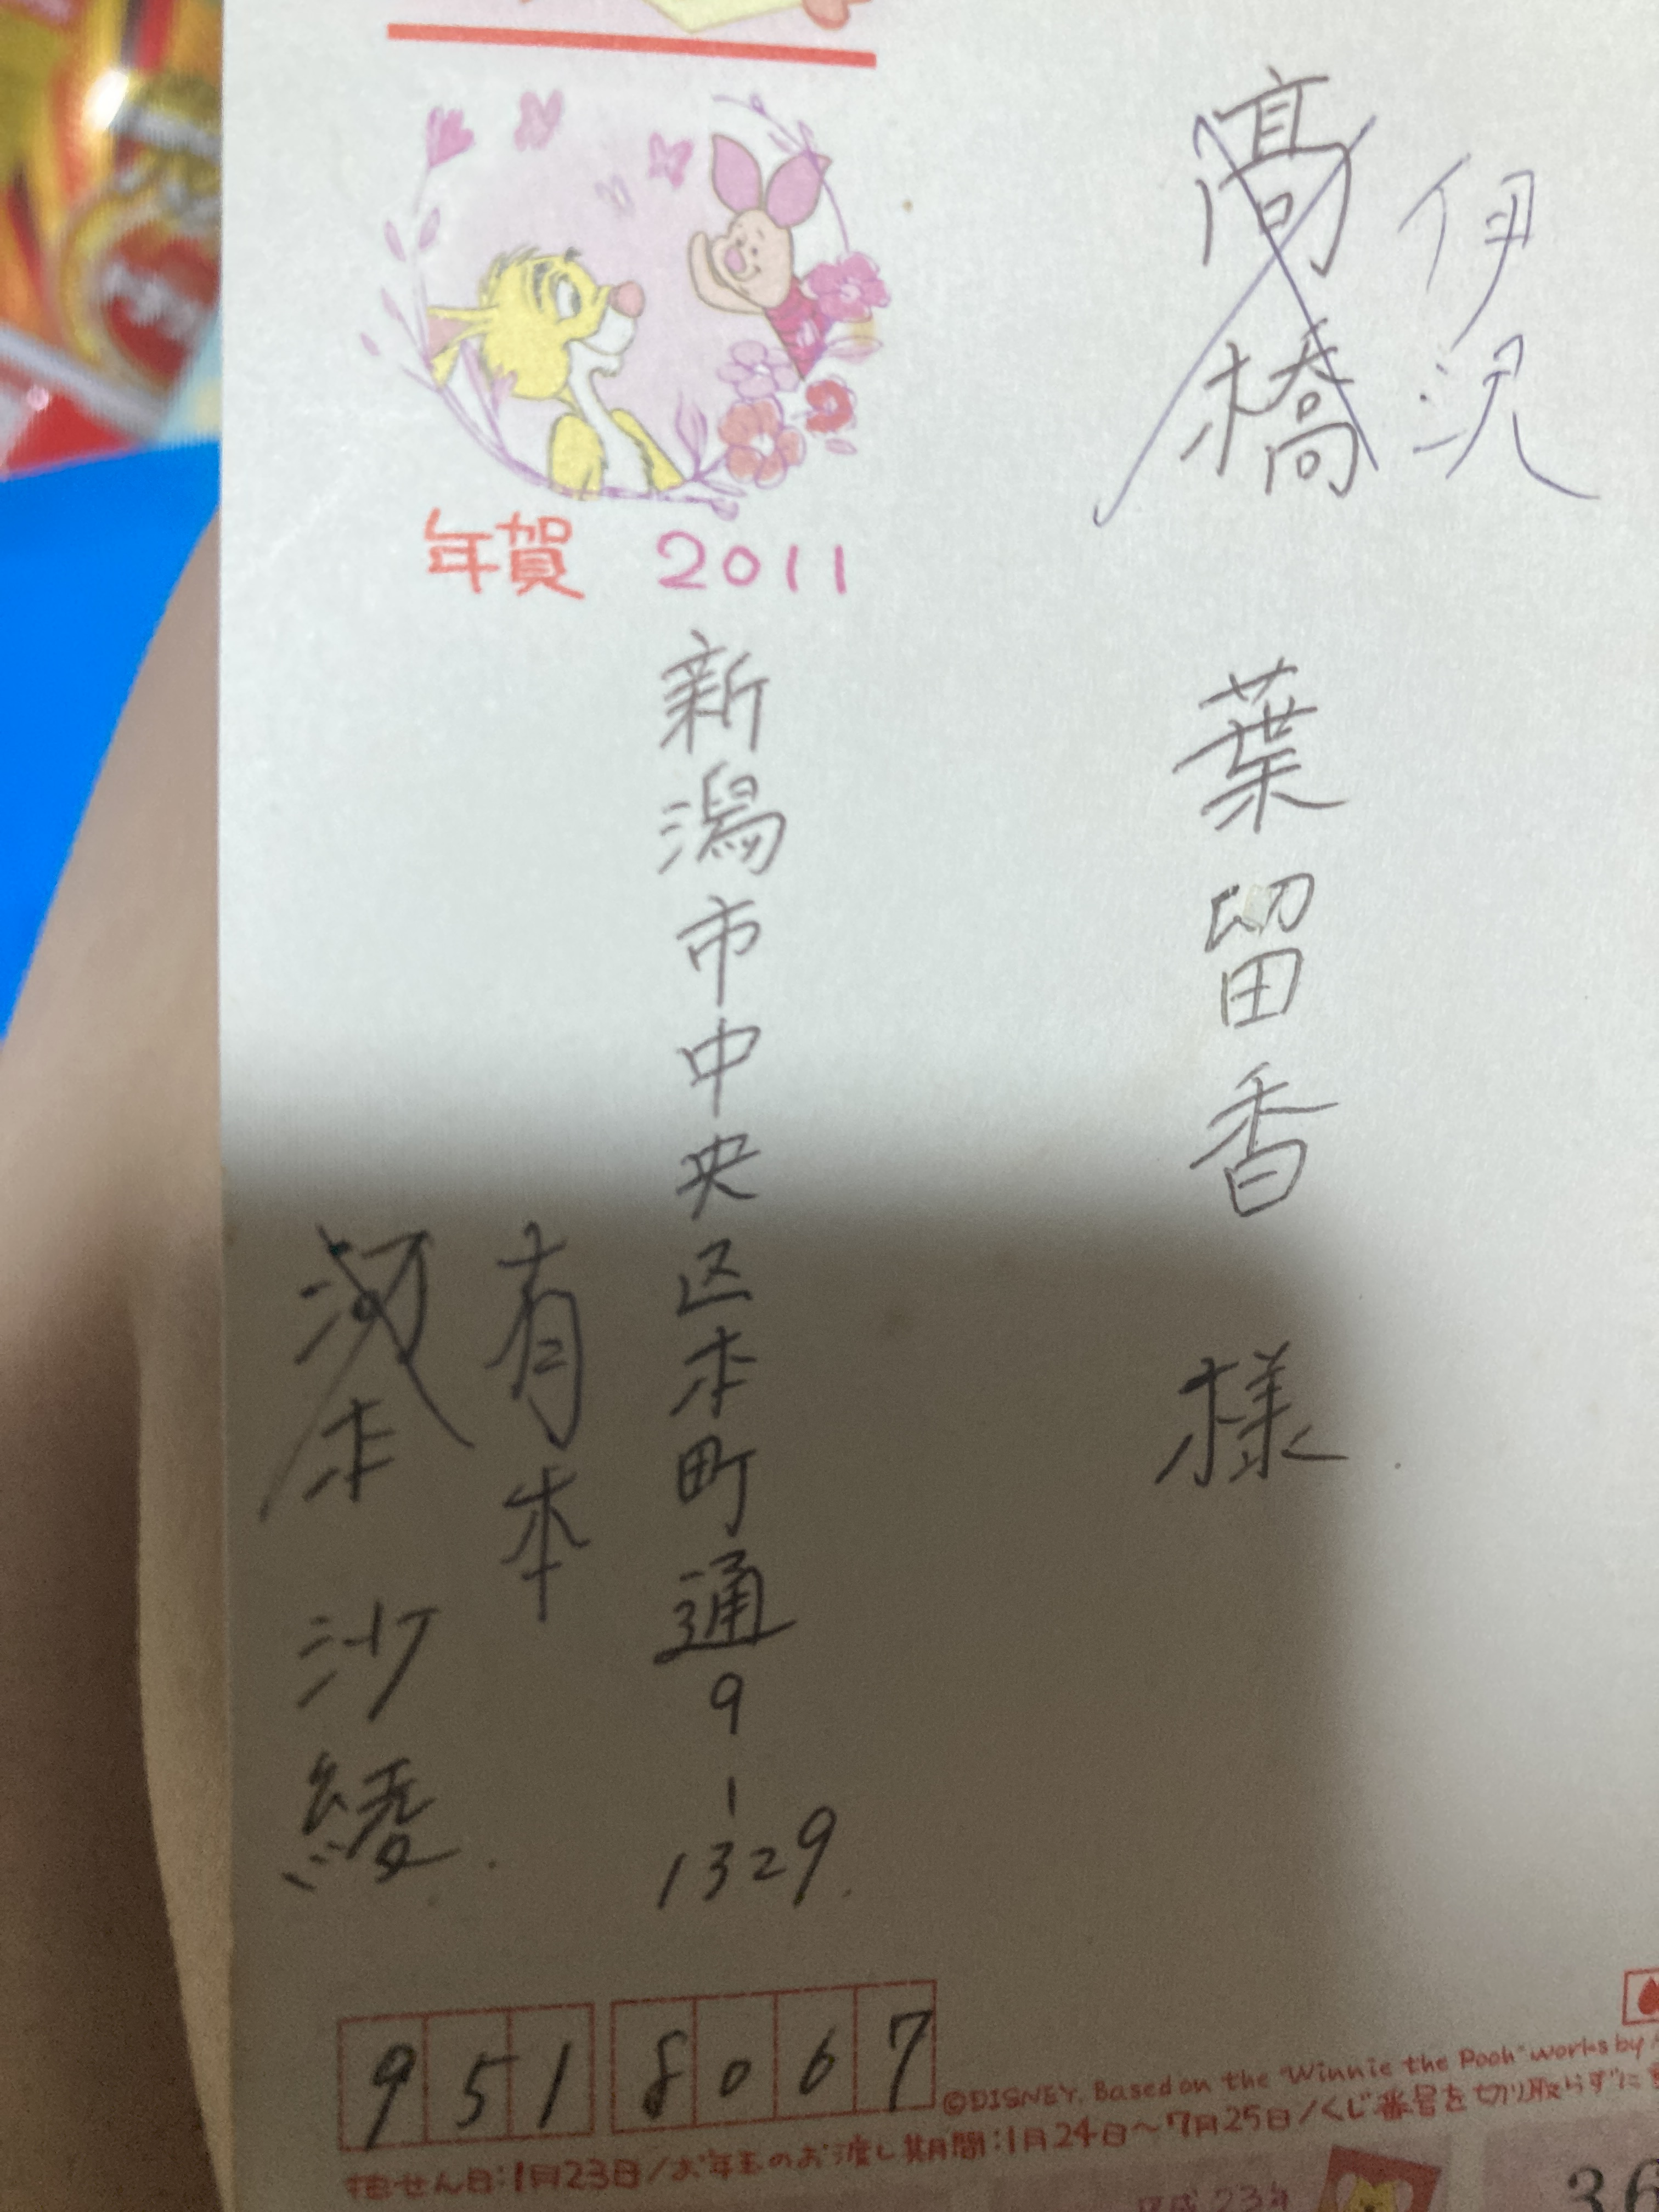 伊沢
髙橋
葉留香 様
年賀 2011
新潟市中央区本町通9-1329
有本
坂本 沙綾
951 8067
©DISNEY. Based on the "Winnie the Pooh" works by A
抽せん日:1月23日/お年玉のお渡し期間:1月24日～7月25日/くじ番号を切り取らずに
平成23年
36